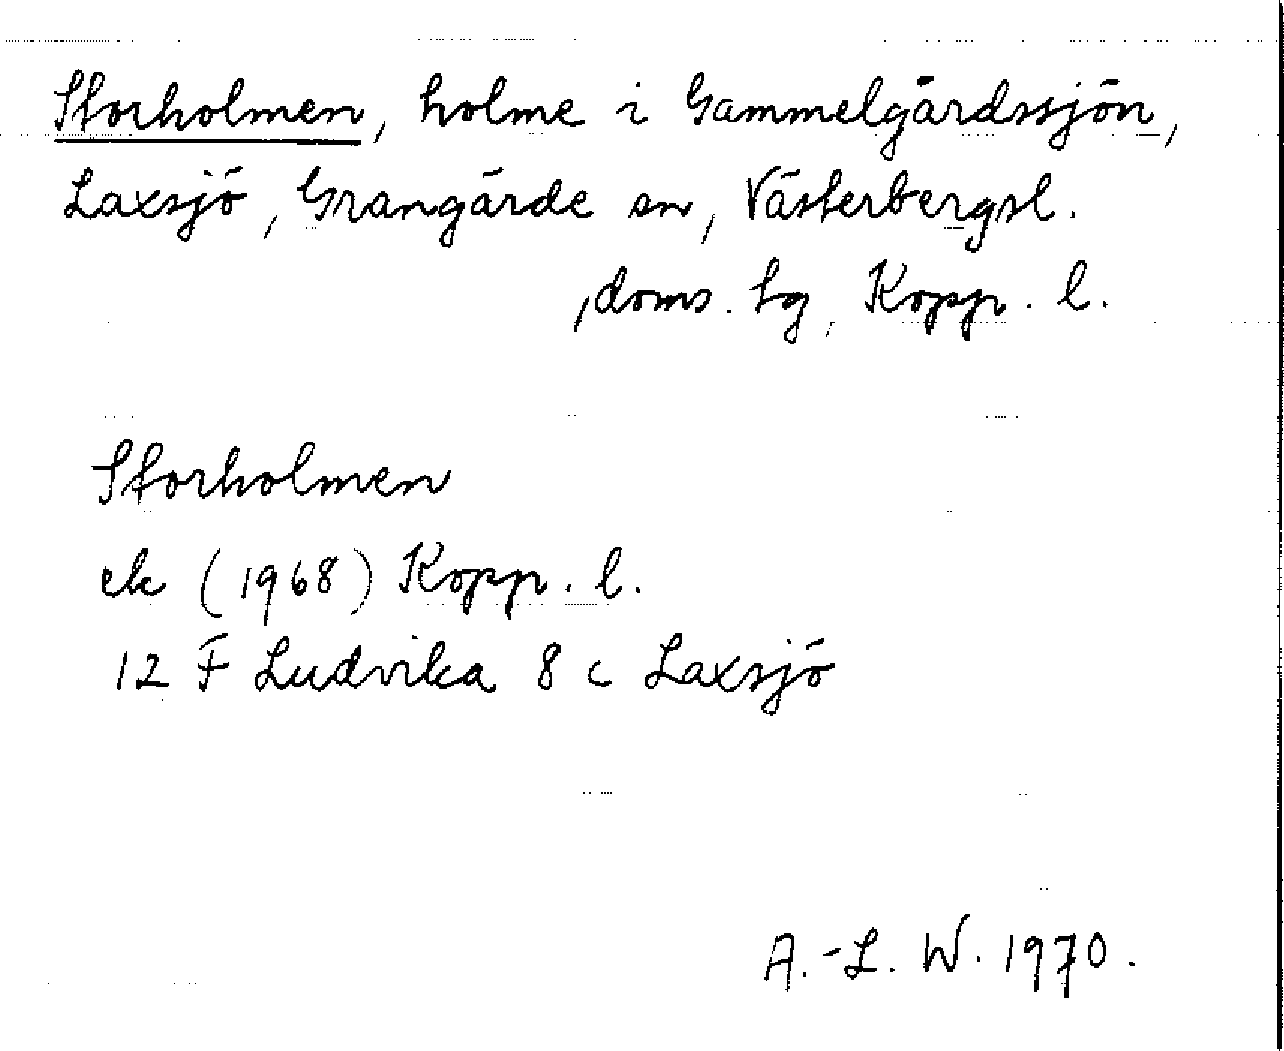 Storholmen, holme i Gammelgårdssjön,
Laxsjö, Grangärde sn, Västerbergsl.
, doms. hg, Kopp. l.
Storholmen
ek (1968) Kopp. l.
12 F Ludvika 8 c Laxsjö
A.-L. W. 1970.